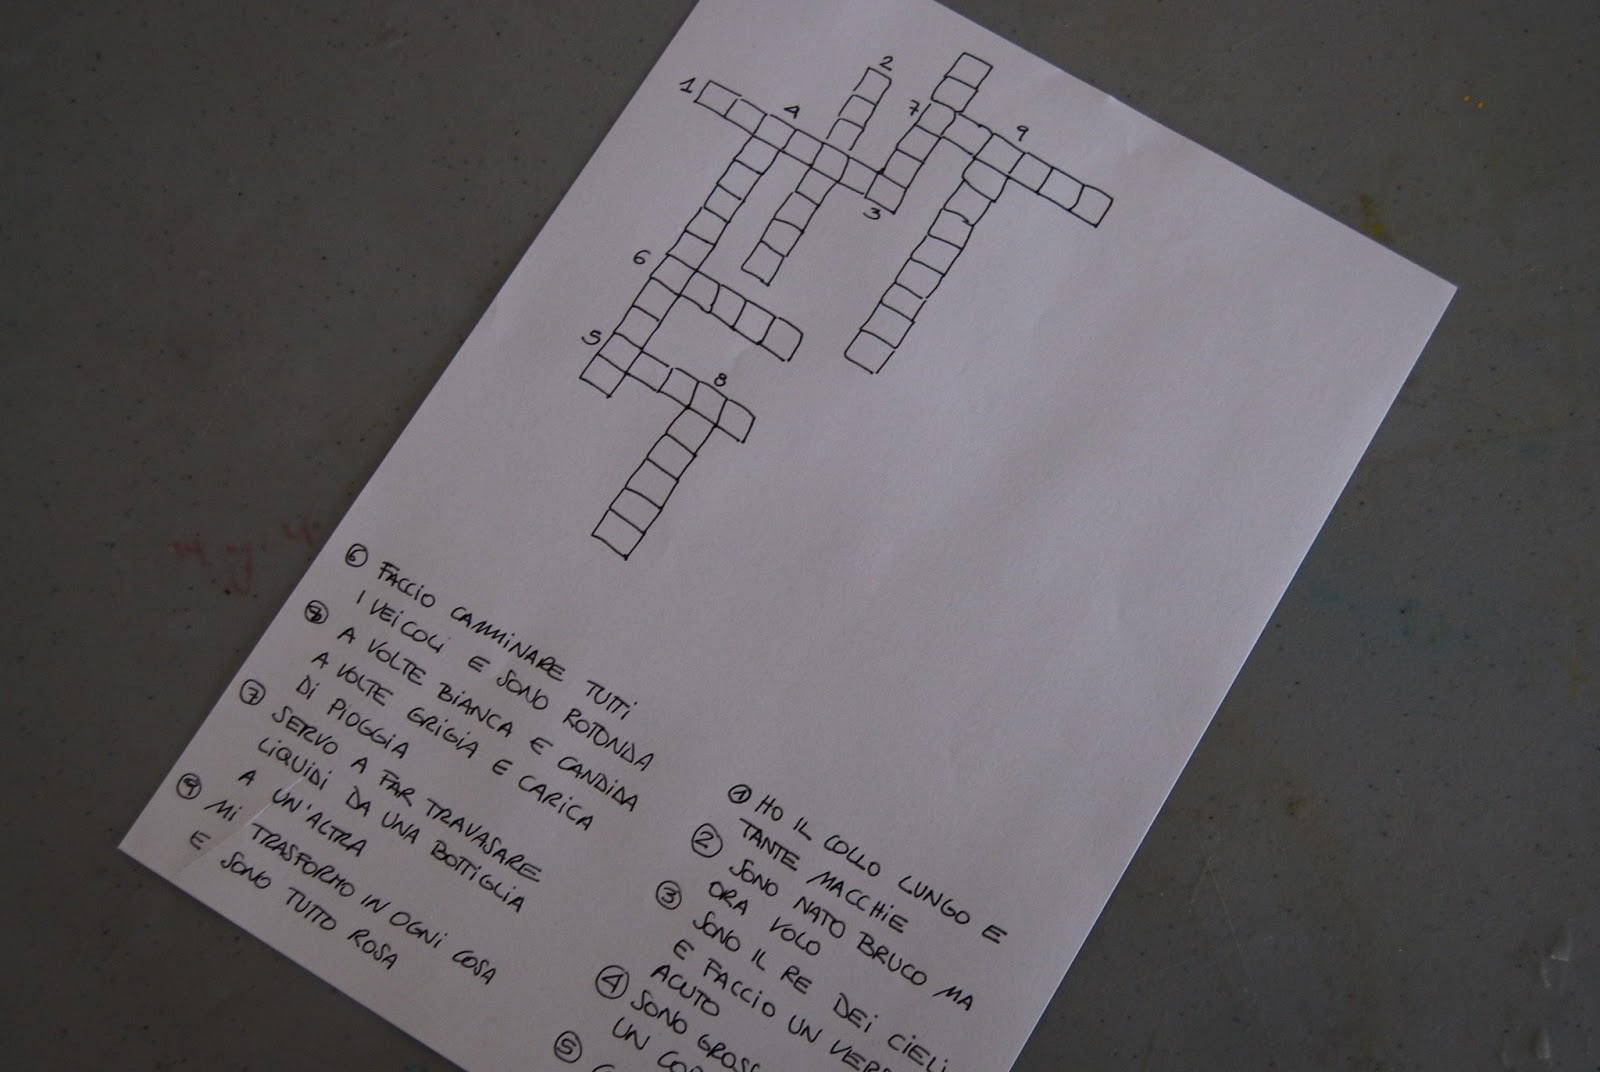 1
2
7
4
9
3
6
5
8
⑥ FACCIO CAMMINARE TUTTI
I VEICOLI E SONO ROTONDA
⑧ A VOLTE BIANCA E CANDIDA
A VOLTE GRIGIA E CARICA
DI PIOGGIA
⑦ SERVO A FAR TRAVASARE
LIQUIDI DA UNA BOTTIGLIA
A UN'ALTRA
⑨ MI TRASFORMO IN OGNI COSA
E SONO TUTTO ROSA
① HO IL COLLO LUNGO E
TANTE MACCHIE
② SONO NATO BRUCO MA
ORA VOLO
③ SONO IL RE DEI CIELI
E FACCIO UN
ACUTO
④ SONO
UN
⑤